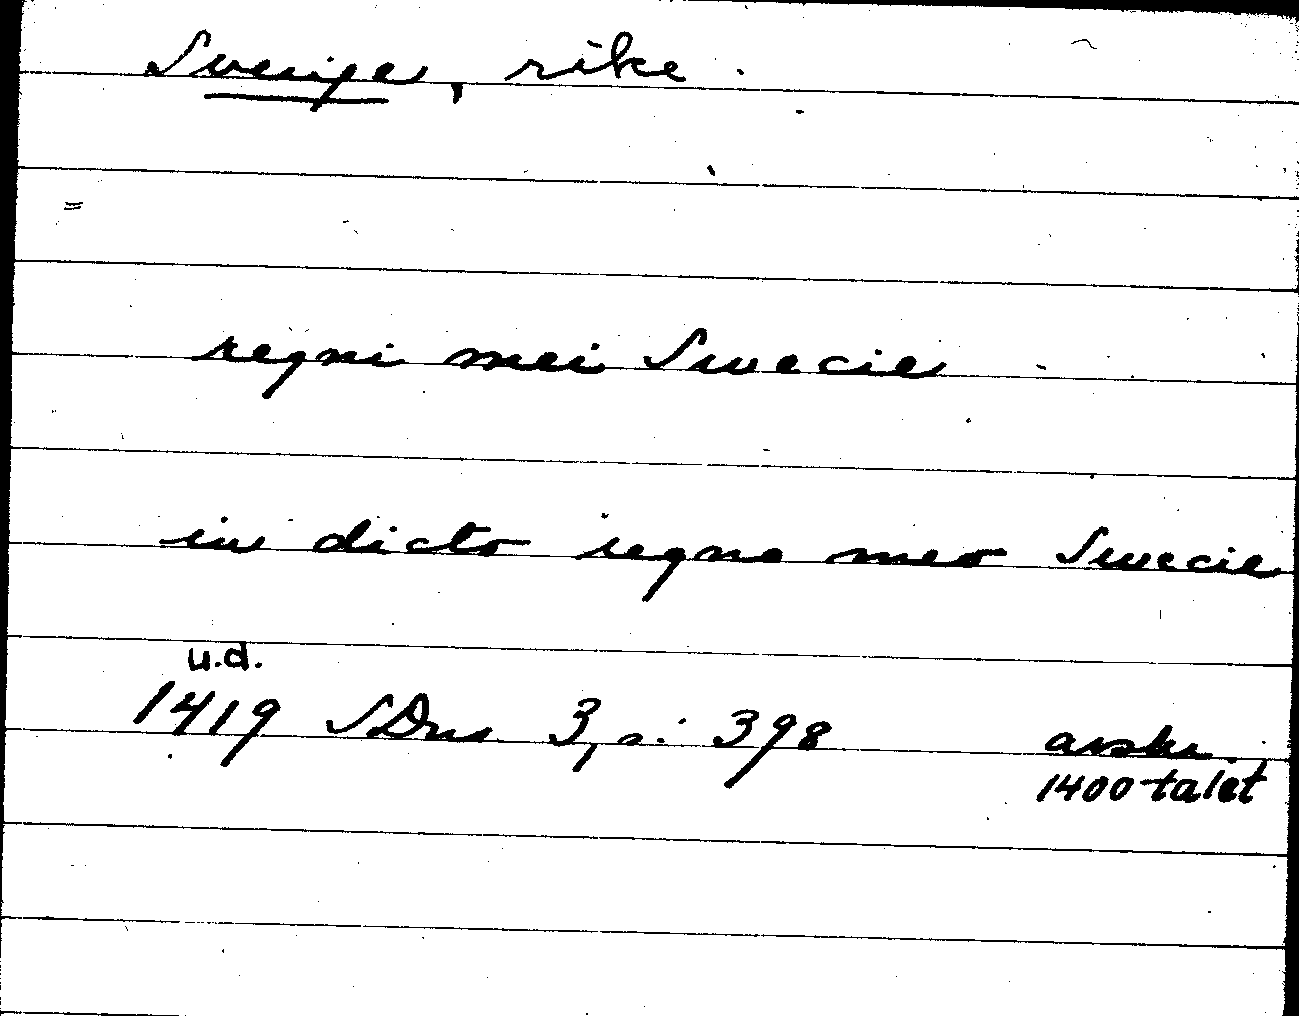 Sverige, rike.
regni mei Swecie
in dicto regno meo Swecie
u.d.
1419 SDns 3, s. 398 avskr.
1400-talet